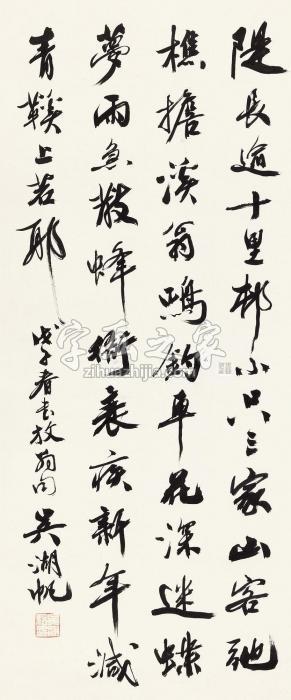 隄長逾十里邨小只三家山客弛
樵擔溪翁鳴釣車花深迷蝶
夢雨急散蜂衙衰疾新年減
青鞵上若耶
戊子春書放翁句 吳湖帆
字画之家
zihuazhijia.com